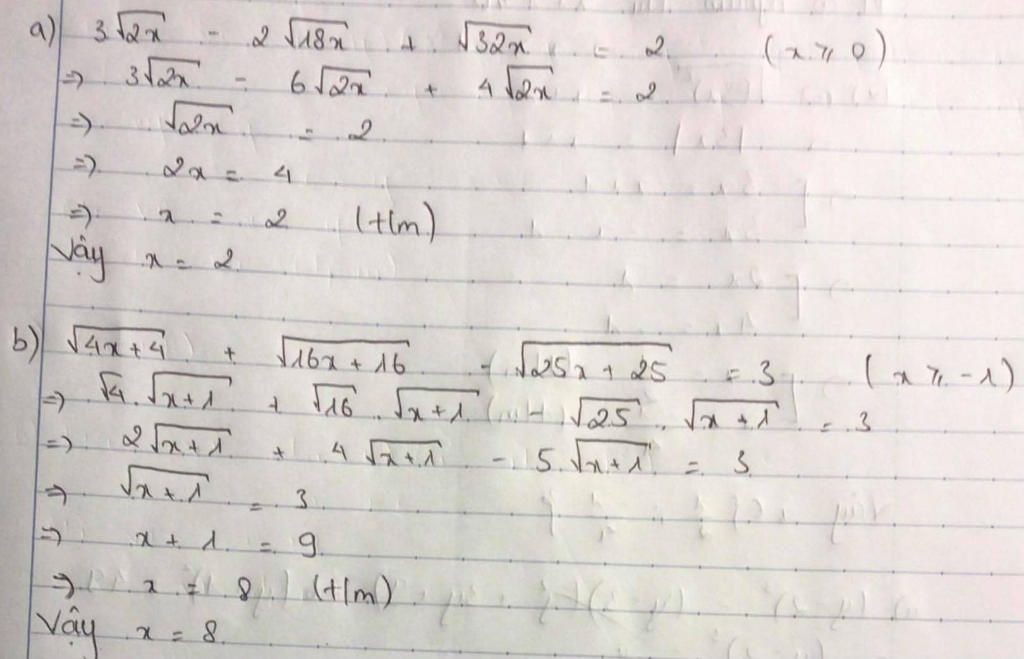 a) 3√2x - 2√18x + √32x = 2 (x ⩾ 0)
=> 3√2x - 6√2x + 4√2x = 2
=> √2x = 2
=> 2x = 4
=> x = 2 (t/m)
Vậy x = 2
b) √4x+4 + √16x+16 - √25x+25 = 3 (x ⩾ -1)
=> √4.√x+1 + √16.√x+1 - √25.√x+1 = 3
=> 2√x+1 + 4√x+1 - 5.√x+1 = 3
=> √x+1 = 3
=> x + 1 = 9
=> x = 8 (t/m)
Vậy x = 8